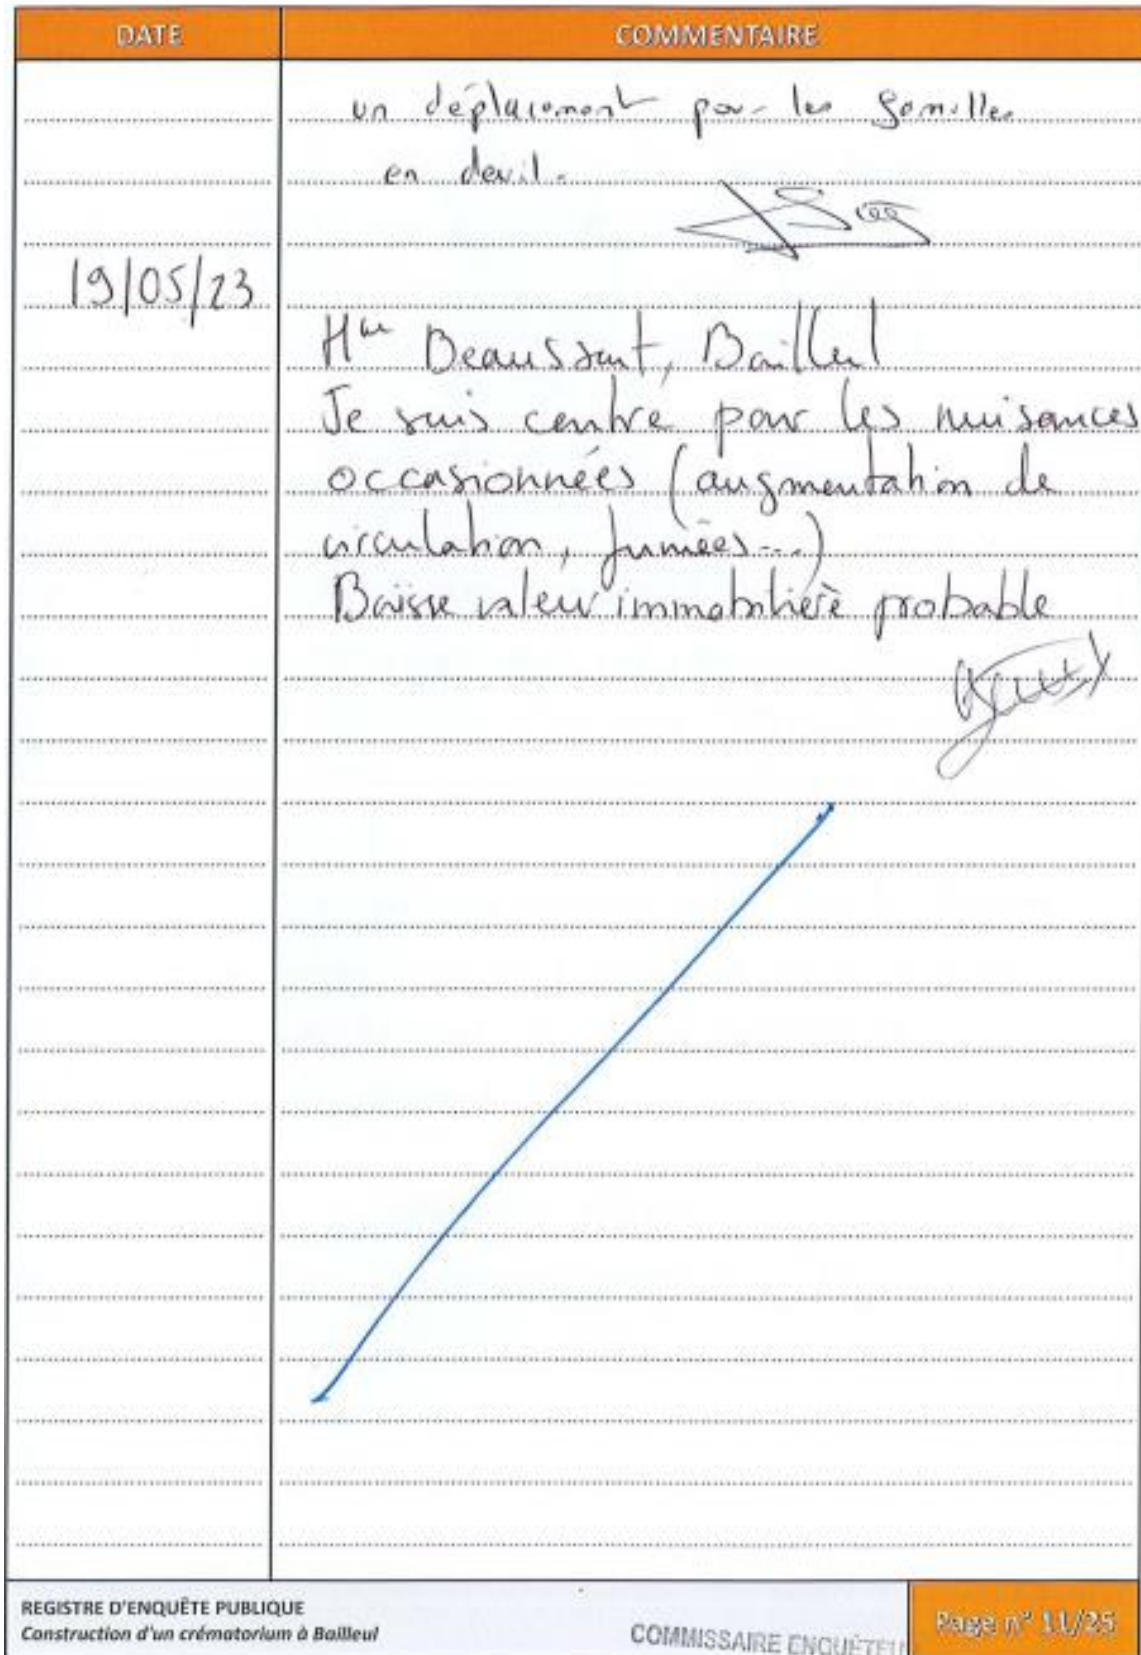 DATE COMMENTAIRE
un déplacement pour les familles
en deuil.
19/05/23
Mme Beaussant, Bailleul
Je suis contre pour les nuisances
occasionnées (augmentation de
circulation, fumées...)
Baisse valeur immobilière probable
REGISTRE D'ENQUÊTE PUBLIQUE
Construction d'un crématorium à Bailleul
COMMISSAIRE ENQUÊTEU
Page n° 11/25